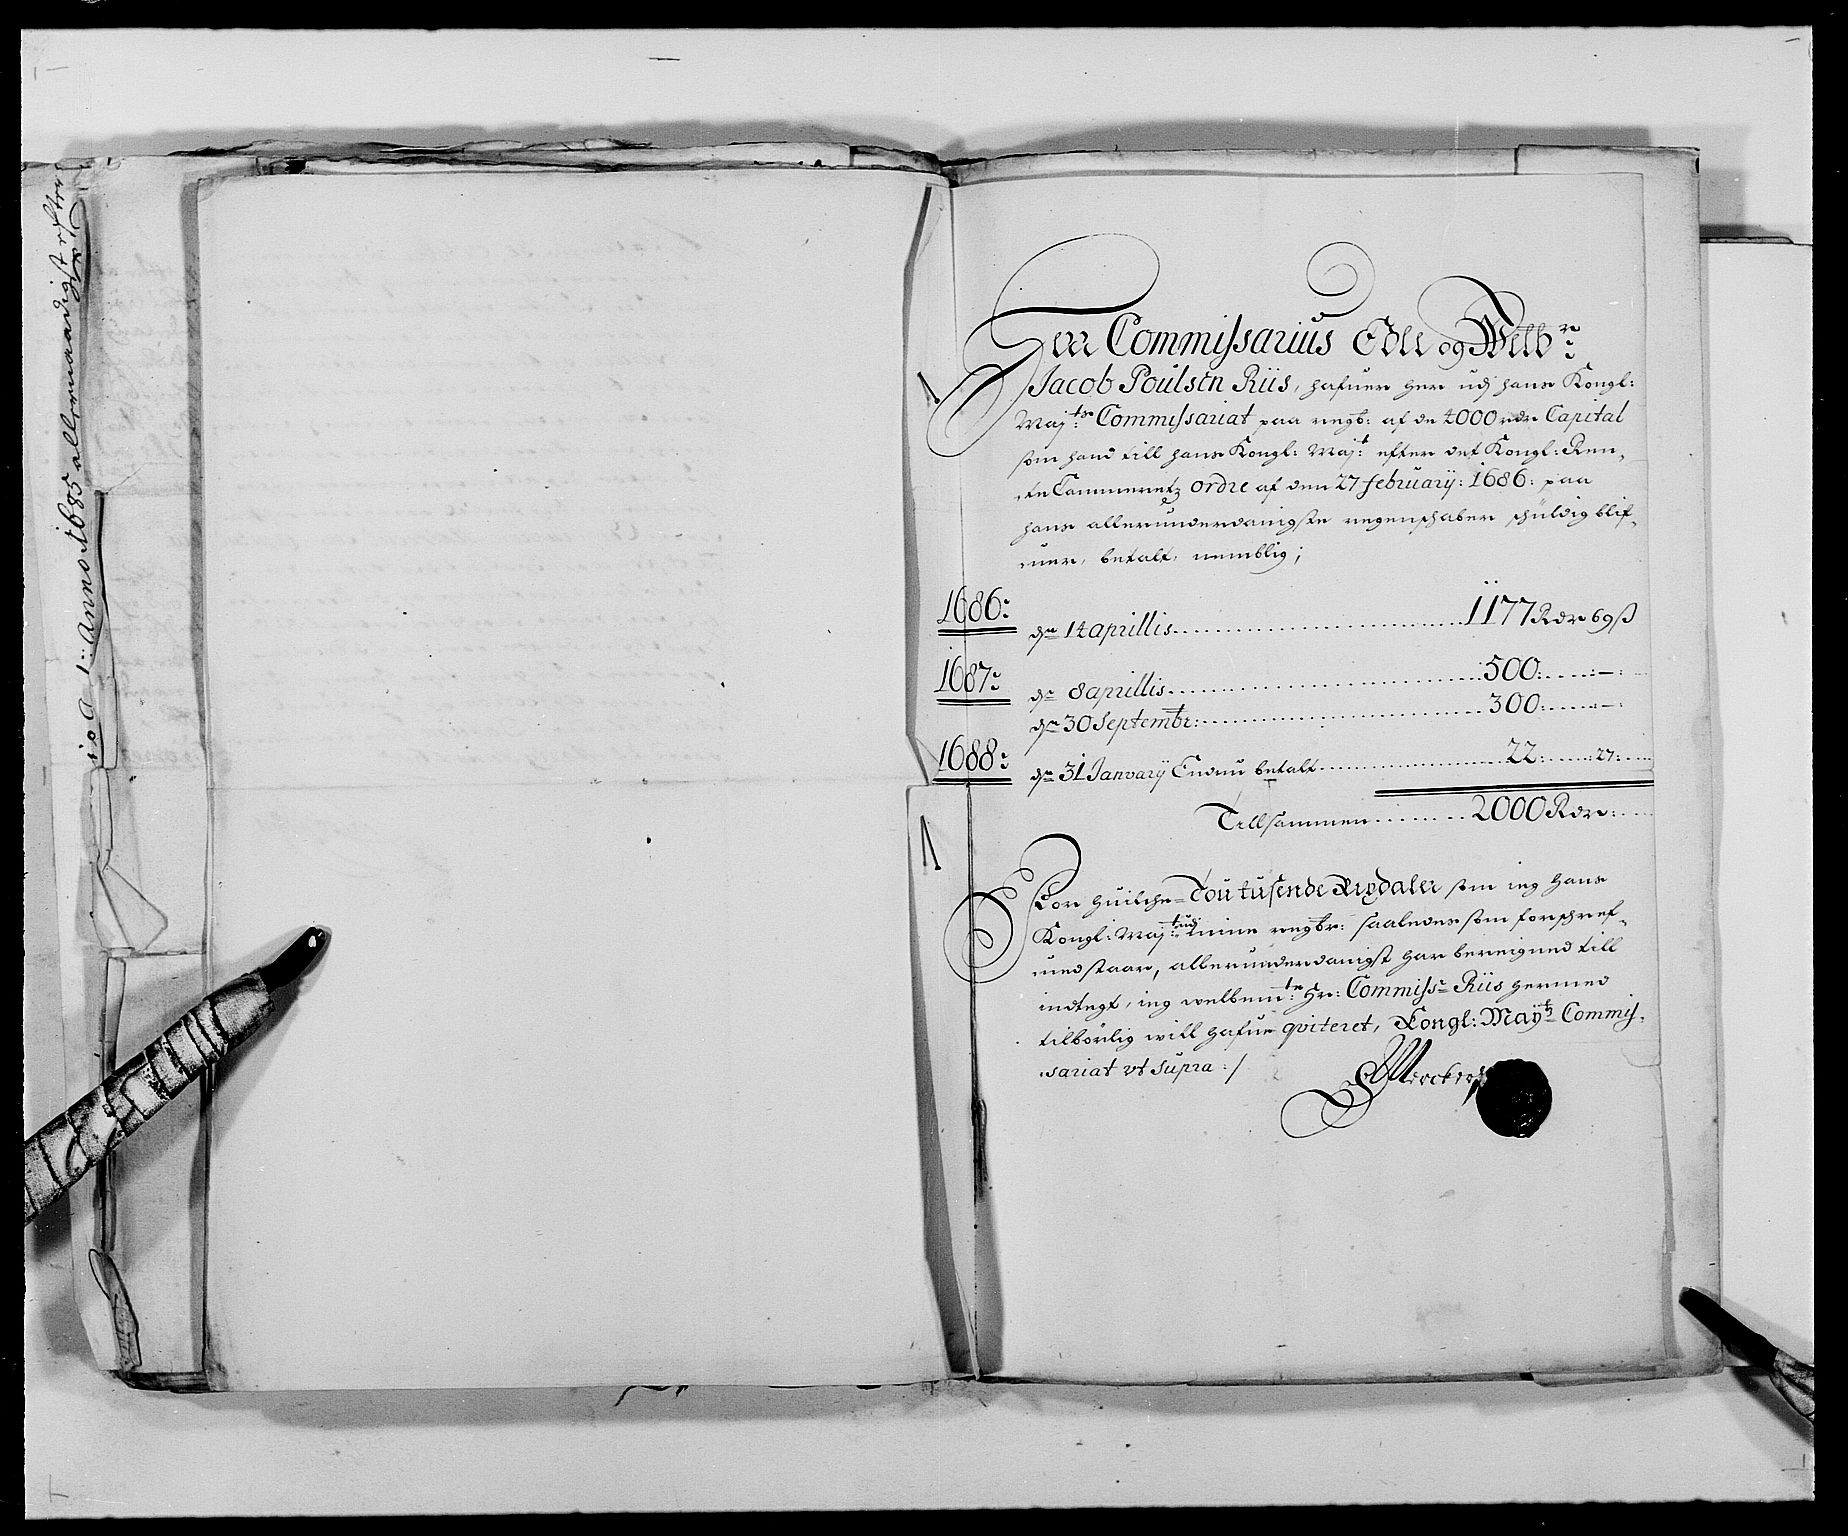 io A 1: Anno 1685 allernaadigst efter
Herr Commissarius Edle og Welb:r
Jacob Poulsen Riis, hafuer her udj hans Kongl:
Maj:ts Commissariat paa regb: af de 4000 rdr Capital
som hand till hans Kongl: Maj:t efter det Kongl: Ren-
te Cammeretz ordre af den 27 february: 1686: paa
hans allerunderdanigste regenschaber schüldig blif-
uer, betalt, nemblig;
1686: dn 14 aprillis 1177 Rdr 69 ß
1687: dn 8 aprillis 500: —:
dn 30 Septembr: 300: —:
1688: dn 31 Januarij Endnu betalt 22: 27:
Tillsammen 2000 Rdr:
For huilche Tou tusende Rixdaler som ieg hans
Kongl: Maj:ts udj mine regbr: saaledes som forschref-
ued staar, allerunderdanigst har beregned till
indtegt, ieg welbem:te Hr: Commiss: Riis hermed
tilbörlig will hafue qviteret, Kongl: Mayts Commis-
sariat vt supra :/
S Mercker